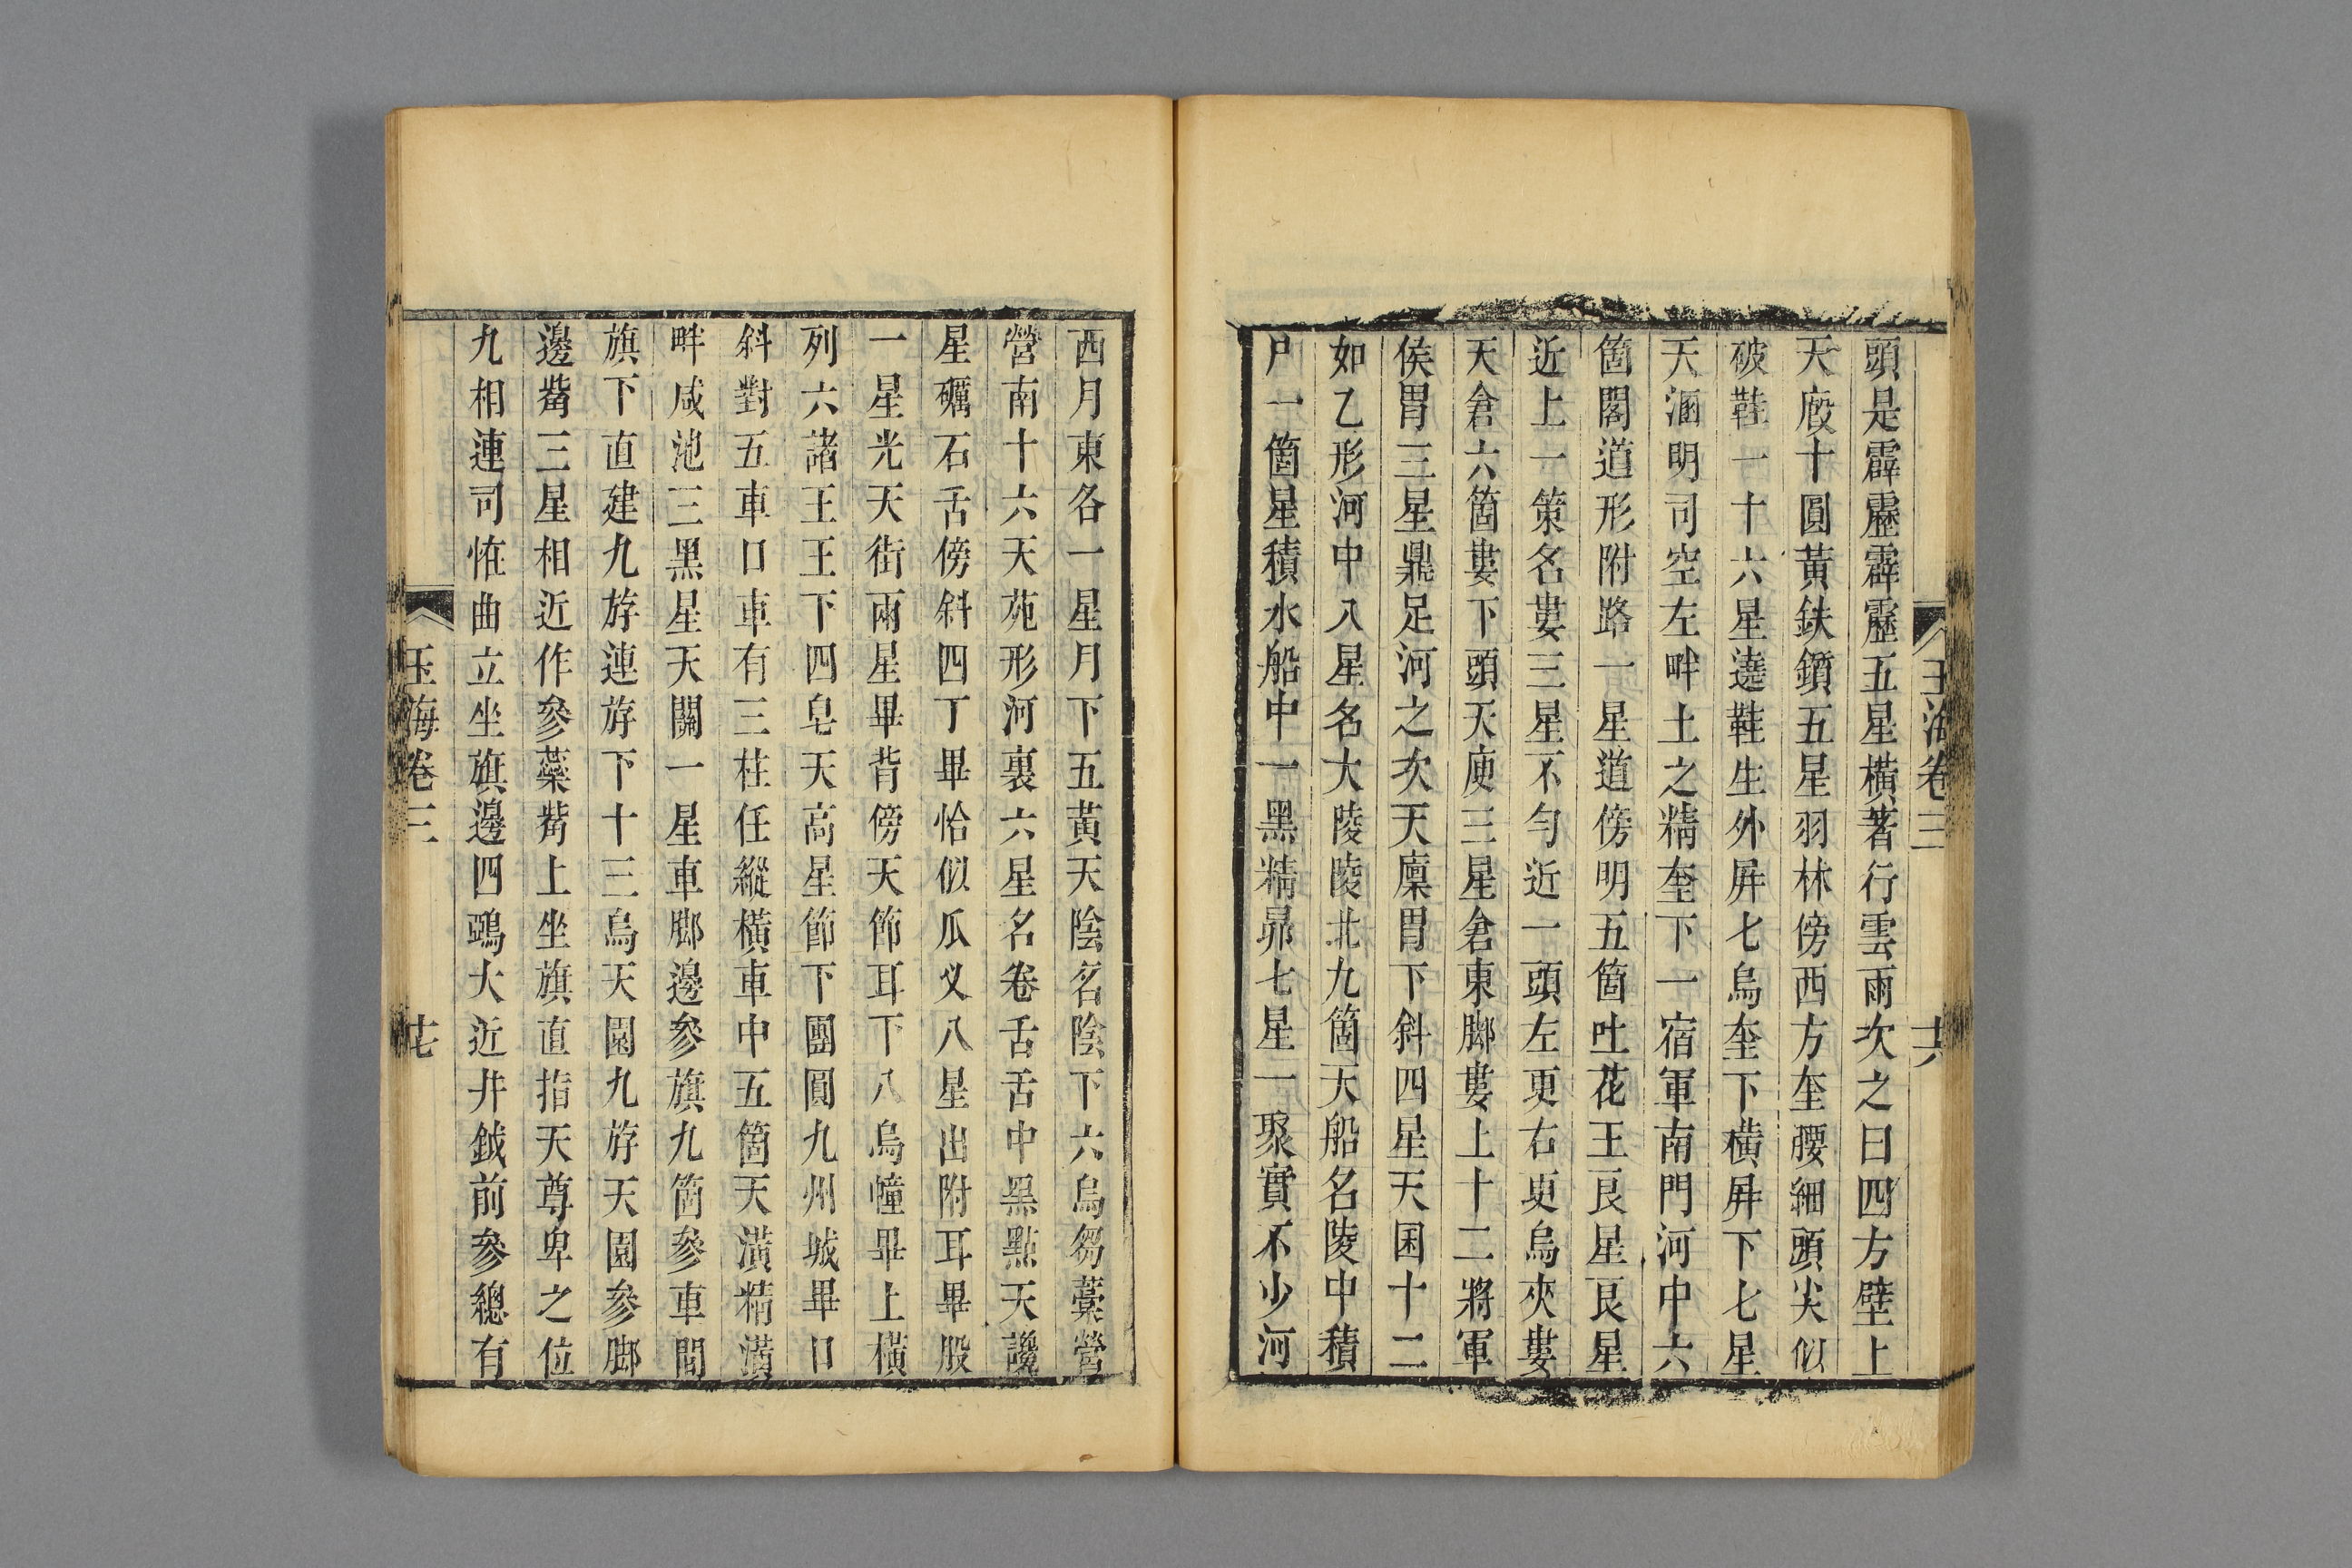 玉海卷三 十六
頭是霹靂霹靂五星橫著行雲雨次之曰四方壁上
天廄十圓黃鈇鑕五星羽林傍西方奎腰細頭尖似
破鞋一十六星遶鞋生外屛七烏奎下橫屛下七星
天溷明司空左畔土之精奎下一宿軍南門河中六
箇閣道形附路一星道傍明五箇吐花王良星良星
近上一策名婁三星不勻近一頭左更右更烏夾婁
天倉六箇婁下頭天庾三星倉東脚婁上十二將軍
侯胃三星鼎足河之次天廩胃下斜四星天囷十二
如乙形河中八星名大陵陵北九箇天船名陵中積
尸一箇星積水船中一黑精昴七星一聚實不少河
西月東各一星月下五黃天陰名陰下六烏芻藁營
營南十六天苑形河裏六星名卷舌舌中黑點天讒
星礪石舌傍斜四丁畢恰似瓜义八星出附耳畢股
一星光天街兩星畢背傍天節耳下八烏幢畢上橫
列六諸王王下四皂天高星節下團圓九州城畢口
斜對五車口車有三柱任縱橫車中五箇天潢精潢
畔咸池三黑星天關一星車脚邊參旗九箇參車間
旗下直建九斿連斿下十三烏天園九斿天園參脚
邊觜三星相近作參蘂觜上坐旗直指天尊卑之位
九相連司怪曲立坐旗邊四鴟大近井鉞前參總有
玉海卷三 十七